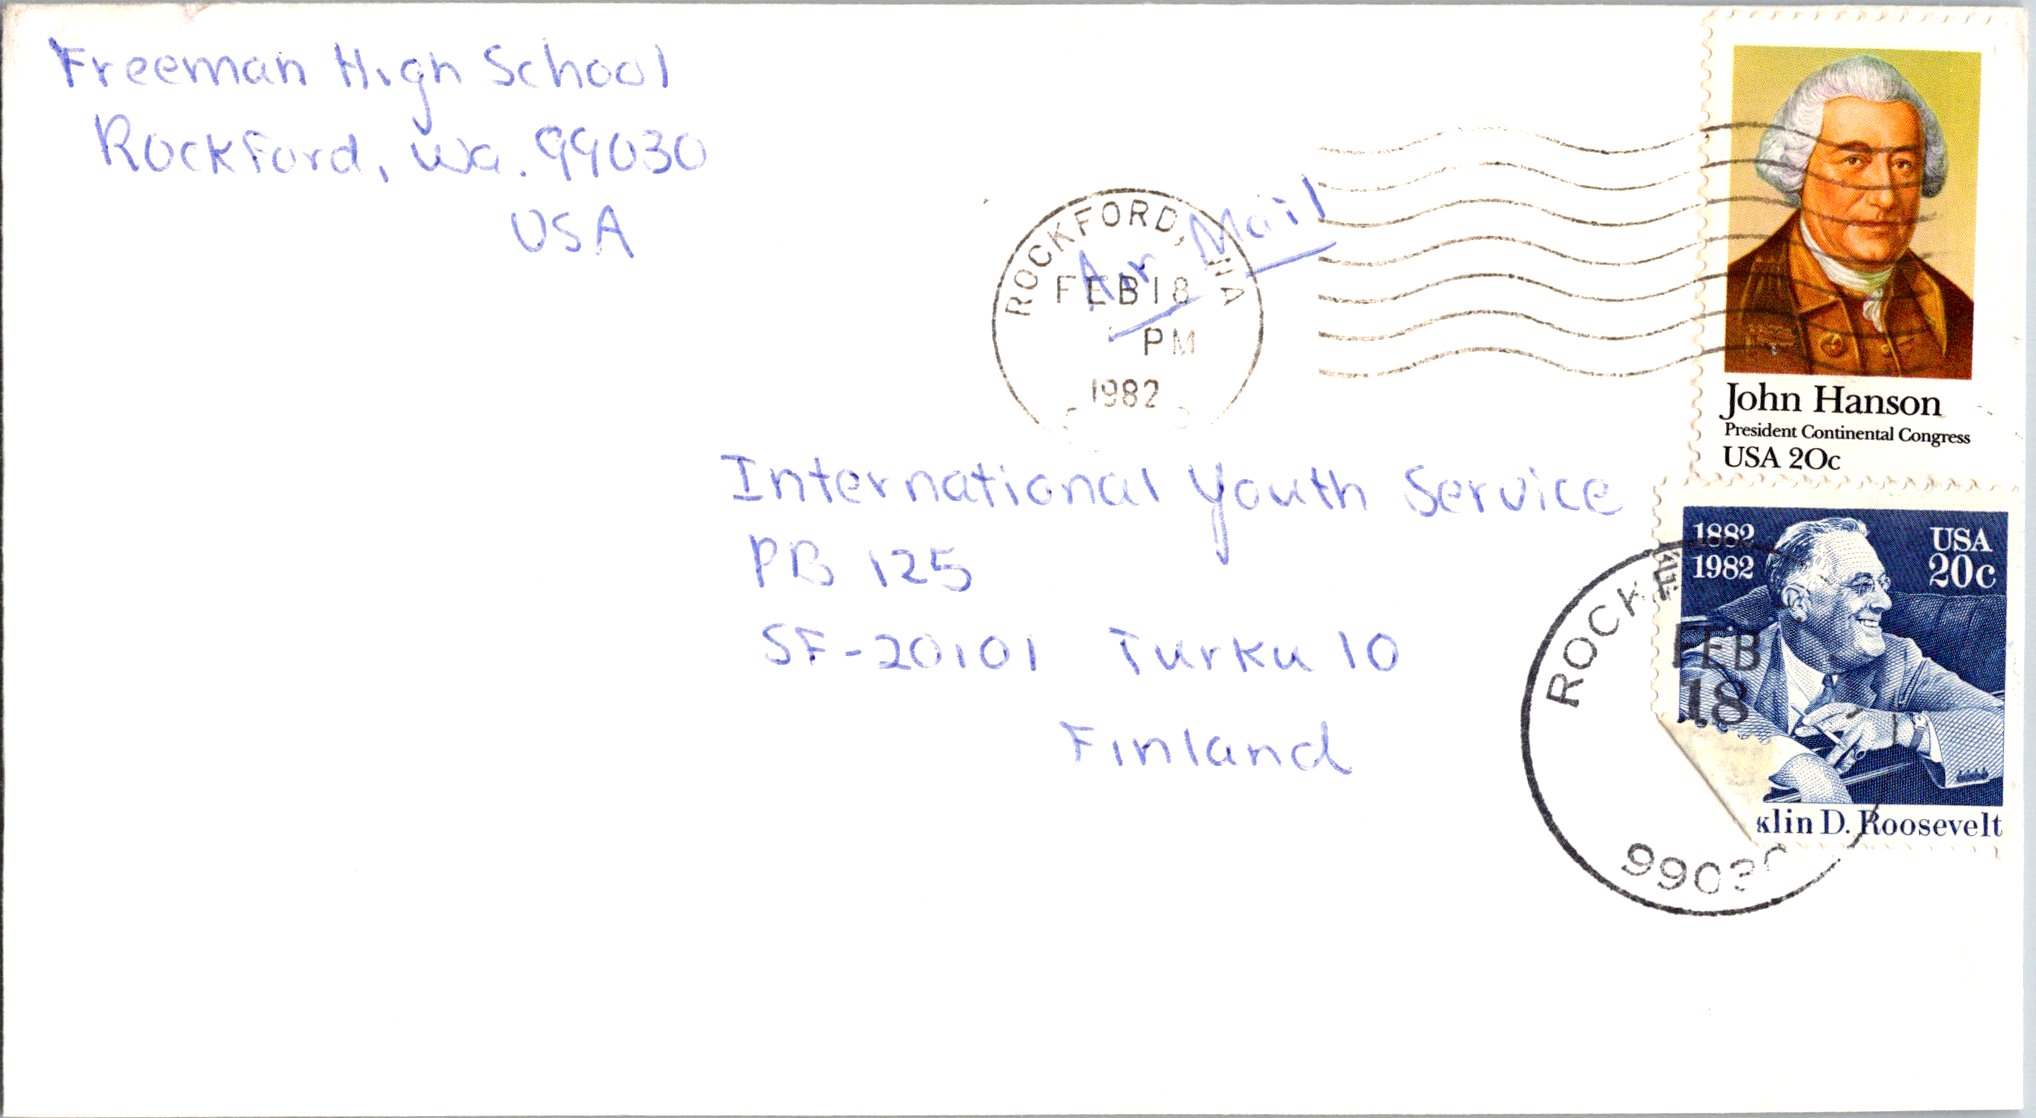 Freeman High School
Rockford, Wa. 99030
USA
Air Mail
ROCKFORD, WA
FEB 18
PM
1982
John Hanson
President Continental Congress
USA 20c
International Youth Service
PB 125
SF-20101 Turku 10
Finland
1882
1982
USA
20c
FEB
18
klin D. Roosevelt
9903